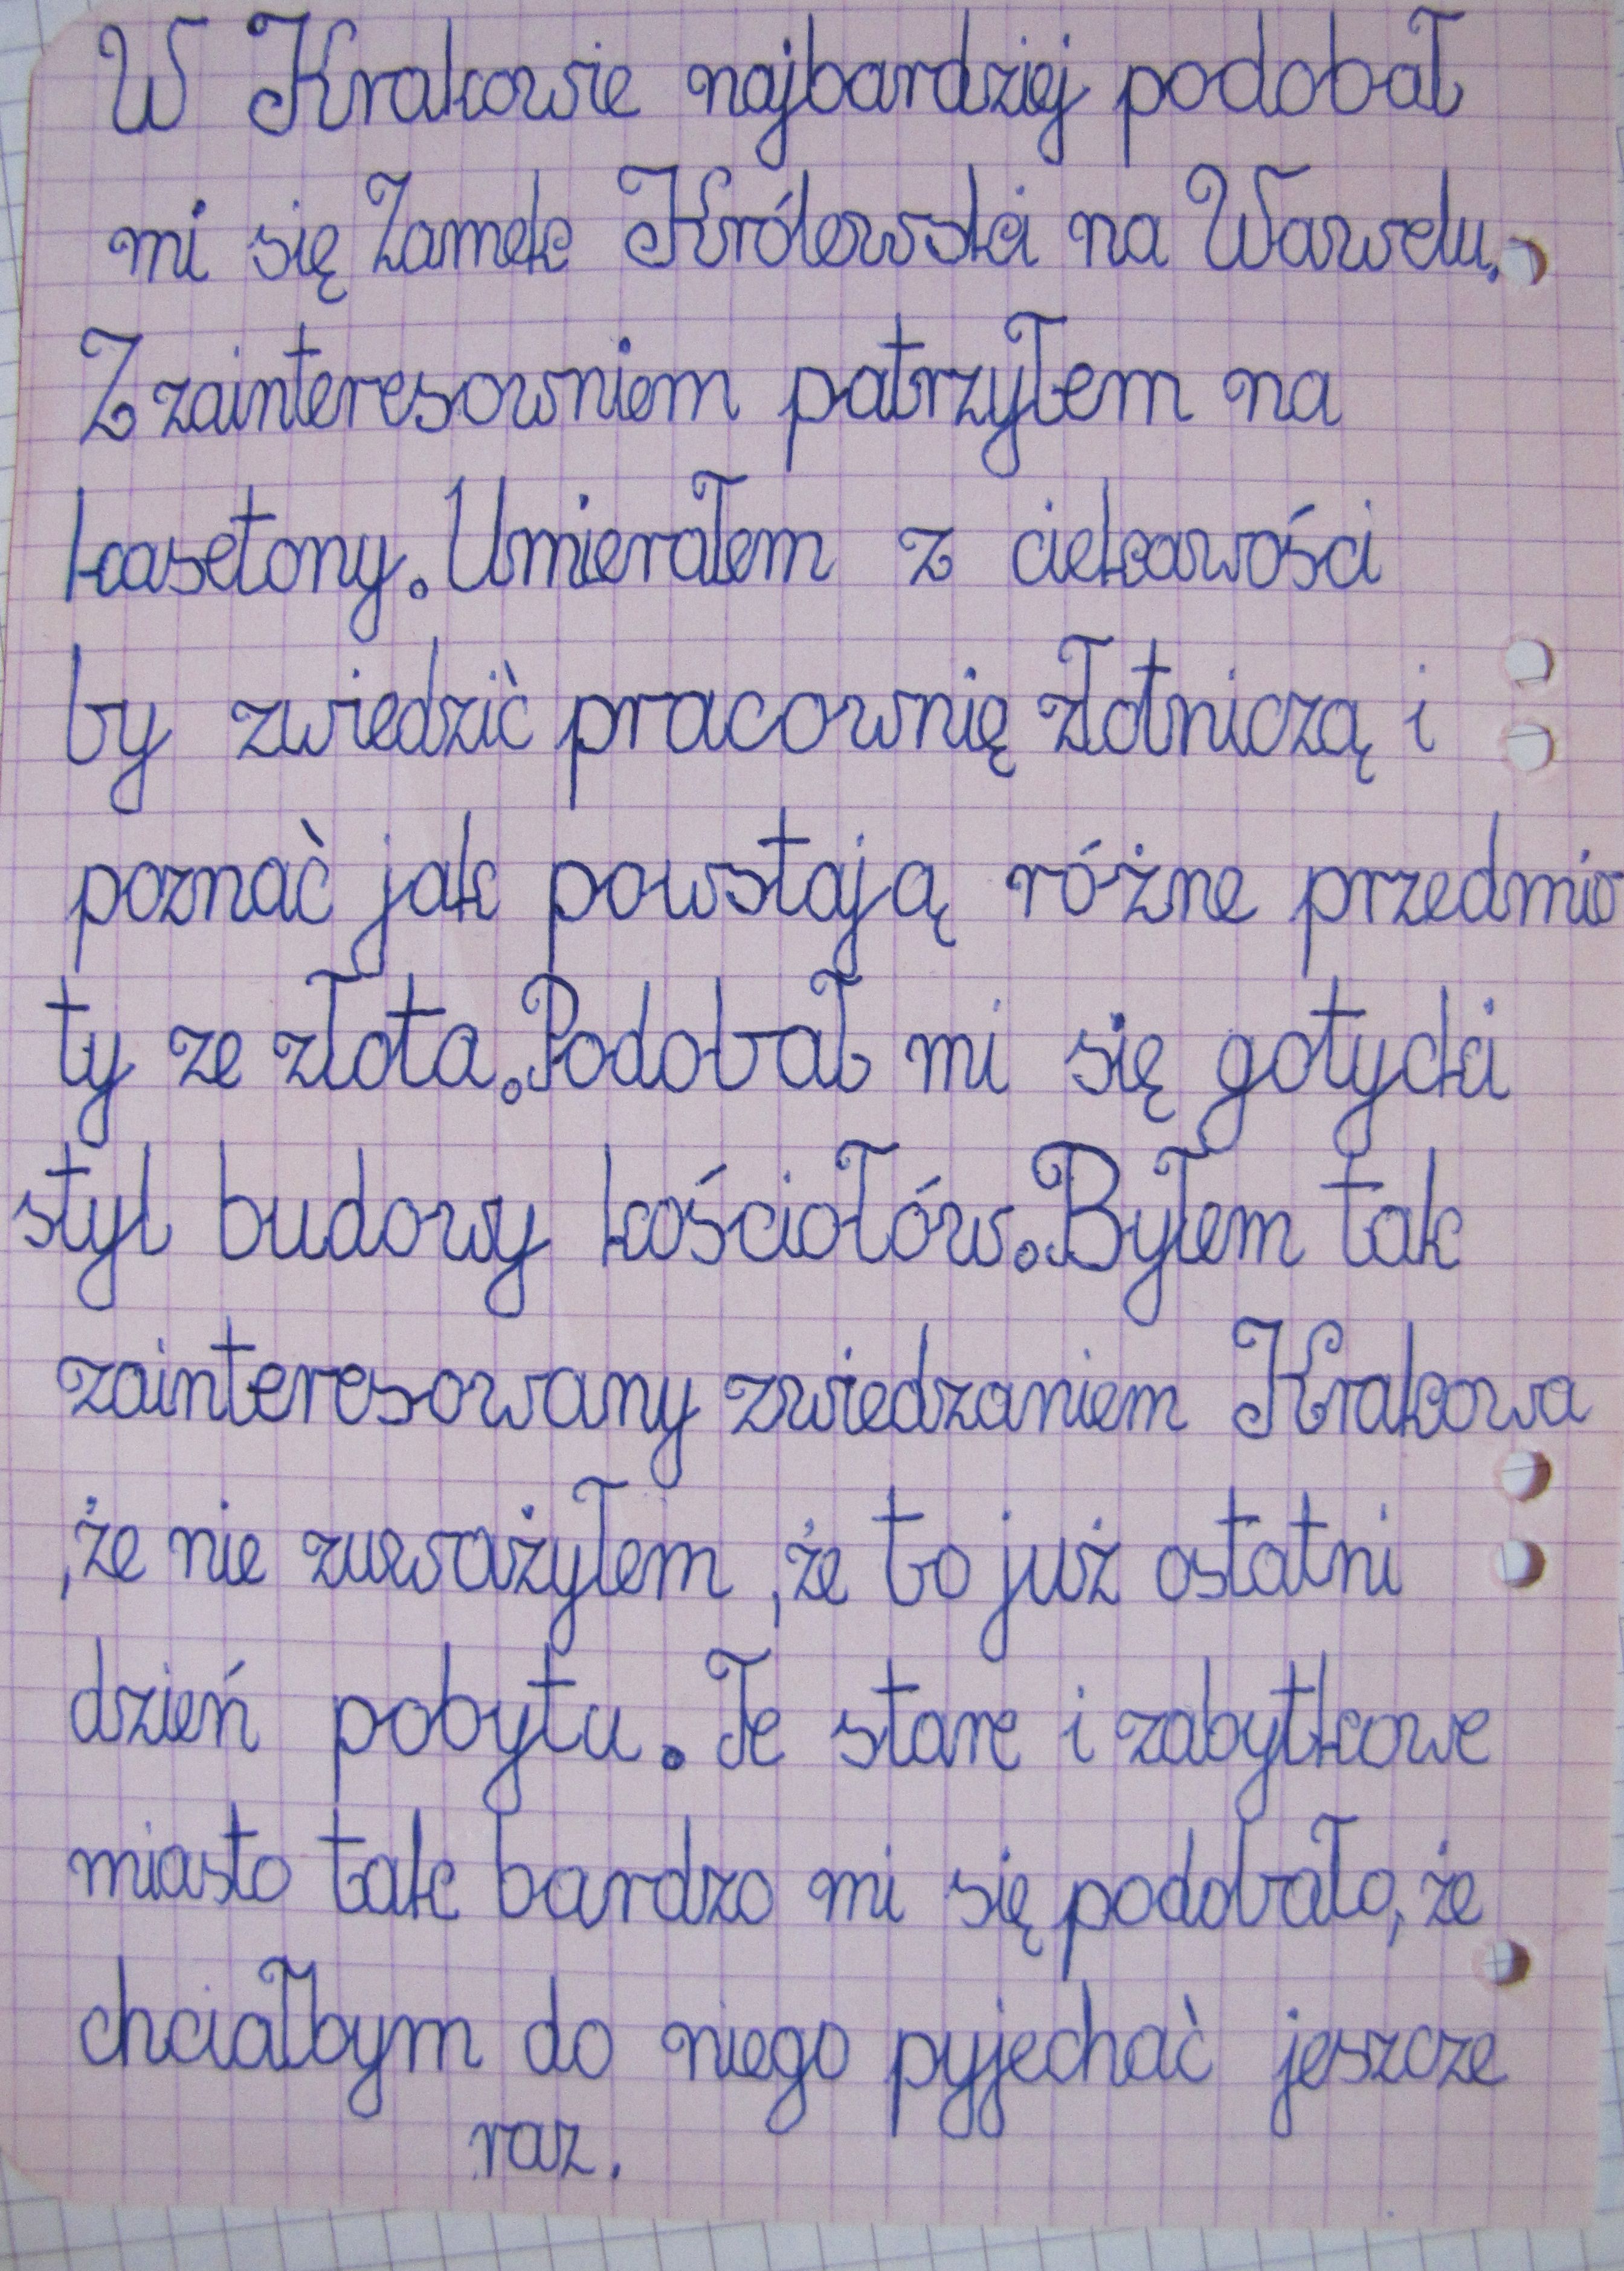 W Krakowie najbardziej podobał
mi się Zamek Królewski na Wawelu.
Z zainteresowniem patrzyłem na
kasetony. Umierałem z ciekawości
by zwiedzić pracownię złotniczą i
poznać jak powstają różne przedmio
ty ze złota. Podobał mi się gotycki
styl budowy kościołów. Byłem tak
zainteresowany zwiedzaniem Krakowa
, że nie zuważyłem , że to już ostatni
dzień pobytu. Te stare i zabytkowe
miasto tak bardzo mi się podobało, że
chciałbym do niego pyjechać jeszcze
raz.